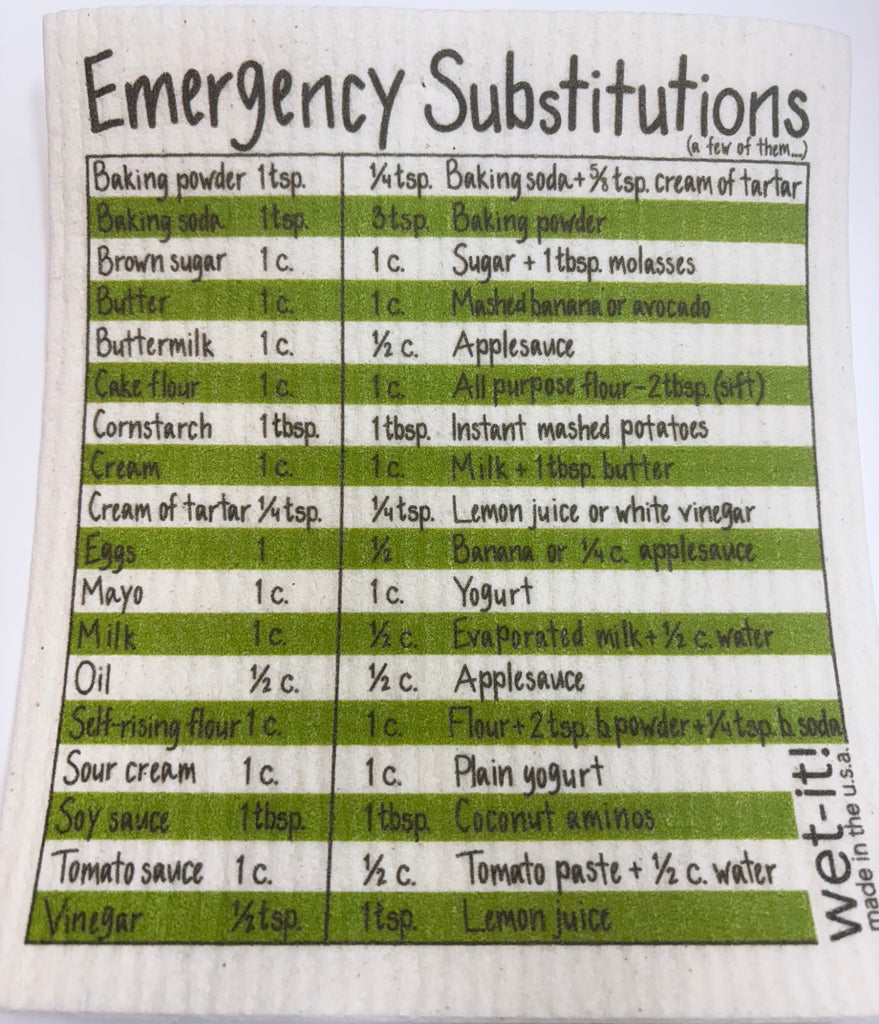 Emergency Substitutions
(a few of them...)
Baking powder 1tsp. ¼tsp. Baking soda + ⅝ tsp. cream of tartar
Baking soda 1tsp. 3tsp. Baking powder
Brown sugar 1 c. 1 c. Sugar + 1tbsp. molasses
Butter 1 c. 1 c. Mashed banana or avocado
Buttermilk 1 c. ½ c. Applesauce
Cake flour 1 c. 1 c. All purpose flour - 2tbsp. (sift)
Cornstarch 1tbsp. 1tbsp. Instant mashed potatoes
Cream 1 c. 1 c. Milk + 1tbsp. butter
Cream of tartar ¼tsp. ¼tsp. Lemon juice or white vinegar
Eggs 1 ½ Banana or ¼ c. applesauce
Mayo 1 c. 1 c. Yogurt
Milk 1 c. ½ c. Evaporated milk + ½ c. water
Oil ½ c. ½ c. Applesauce
Self-rising flour 1 c. 1 c. Flour + 2 tsp. b.powder + ¼tsp. b.soda
Sour cream 1 c. 1 c. Plain yogurt
Soy sauce 1tbsp. 1tbsp. Coconut aminos
Tomato sauce 1 c. ½ c. Tomato paste + ½ c. water
Vinegar ½tsp. 1tsp. Lemon juice
wet-it!
made in the u.s.a.